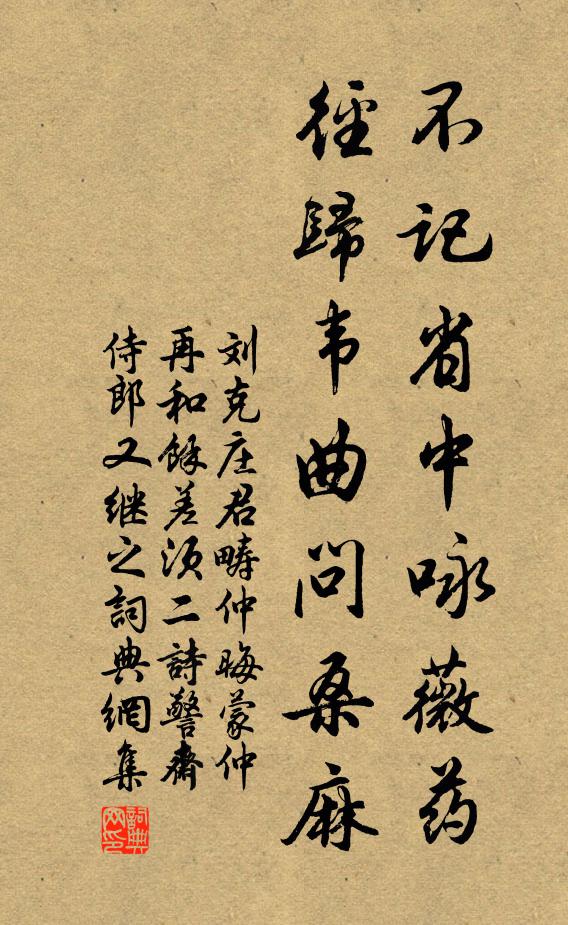 不记省中咏薇药
径歸韦曲问桑麻
刘克庄君畴仲晦蒙仲
再和馀差须二詩警齋
侍郎又继之詞典網集
詞典网印